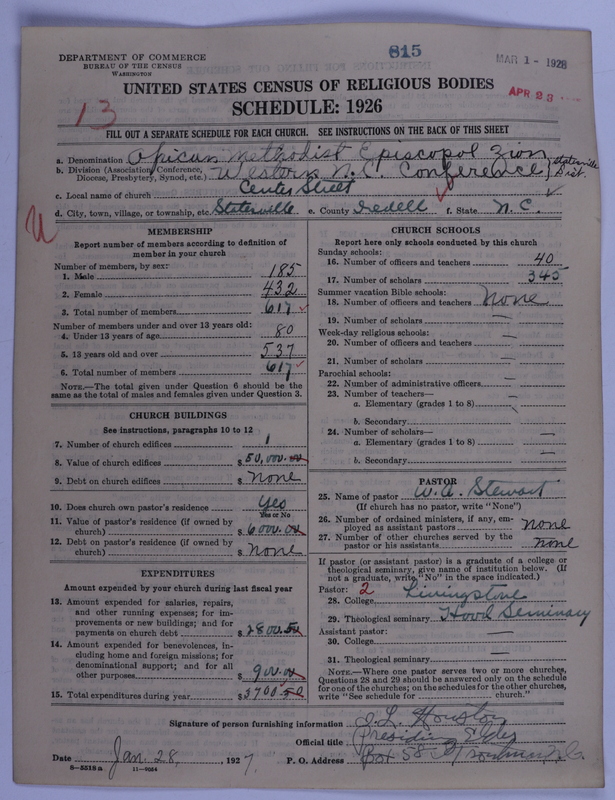 615
DEPARTMENT OF COMMERCE
BUREAU OF THE CENSUS
WASHINGTON
MAR 1 - 1928
UNITED STATES CENSUS OF RELIGIOUS BODIES
APR 23
SCHEDULE: 1926
13
FILL OUT A SEPARATE SCHEDULE FOR EACH CHURCH. SEE INSTRUCTIONS ON THE BACK OF THIS SHEET
a. Denomination African Methodist Episcopol Zion
b. Division (Association, Conference, Diocese, Presbytery, Synod, etc.) Western N.C. Conference, Statesville Dist.
c. Local name of church Center Street
d. City, town, village, or township, etc. Statesville e. County Iredell f. State N.C.
U
MEMBERSHIP
Report number of members according to definition of
member in your church
Number of members, by sex:
1. Male 185
2. Female 432
3. Total number of members 617
Number of members under and over 13 years old:
4. Under 13 years of age 80
5. 13 years old and over 537
6. Total number of members 617
NOTE.—The total given under Question 6 should be
same as the total of males and females given under Question 3.
CHURCH BUILDINGS
See instructions, paragraphs 10 to 12
7. Number of church edifices 1
8. Value of church edifices $ 50,000.00
9. Debt on church edifices $ None
10. Does church own pastor's residence Yes
Yes or No
11. Value of pastor's residence (if owned by
church) $ 6000.00
12. Debt on pastor's residence (if owned by
church) $ None
EXPENDITURES
Amount expended by your church during last fiscal year
13. Amount expended for salaries, repairs,
and other running expenses; for im-
provements or new buildings; and for
payments on church debt $ 2800.50
14. Amount expended for benevolences, in-
cluding home and foreign missions; for
denominational support; and for all
other purposes $ 900.00
15. Total expenditures during year $ 3700.50
CHURCH SCHOOLS
Report here only schools conducted by this church
Sunday schools:
16. Number of officers and teachers 40
17. Number of scholars 345
Summer vacation Bible schools:
18. Number of officers and teachers None
19. Number of scholars —
Week-day religious schools:
20. Number of officers and teachers —
21. Number of scholars —
Parochial schools:
22. Number of administrative officers —
23. Number of teachers—
a. Elementary (grades 1 to 8)
b. Secondary
24. Number of scholars—
a. Elementary (grades 1 to 8) —
b. Secondary —
PASTOR
25. Name of pastor W. A. Stewart
(If church has no pastor, write "None")
26. Number of ordained ministers, if any, em-
ployed as assistant pastors None
27. Number of other churches served by the
pastor or his assistants None
If pastor (or assistant pastor) is a graduate of a college or
theological seminary, give name of institution below. (If
not a graduate, write "No" in the space indicated.)
Pastor: 2
28. College Livingstone
29. Theological seminary Hood Seminary
Assistant pastor:
30. College —
31. Theological seminary —
NOTE.—Where one pastor serves two or more churches,
Questions 28 and 29 should be answered only on the schedule
for one of the churches; on the schedules for the other churches,
write "See schedule for church."
Signature of person furnishing information J. L. Houston
Official title Presiding Elder
Date Jan. 28, 1927. P. O. Address Box 58 Troutman N.C.
8-5518a 11-9054